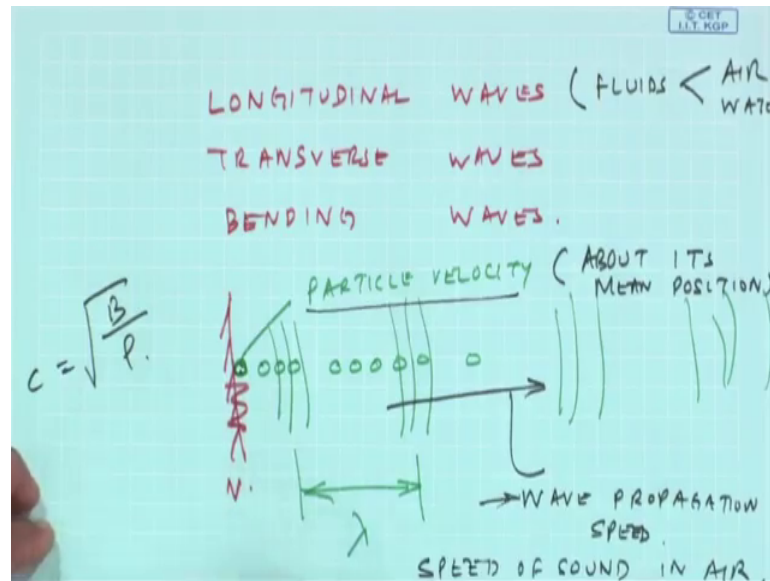 © CET
I.I.T. KGP
LONGITUDINAL WAVES ( FLUIDS < AIR
WATE
TRANSVERSE WAVES
BENDING WAVES.
PARTICLE VELOCITY ( ABOUT ITS
MEAN POSITION)
C = √B/ρ.
N.
λ
→ WAVE PROPAGATION
SPEED.
SPEED OF SOUND IN AIR